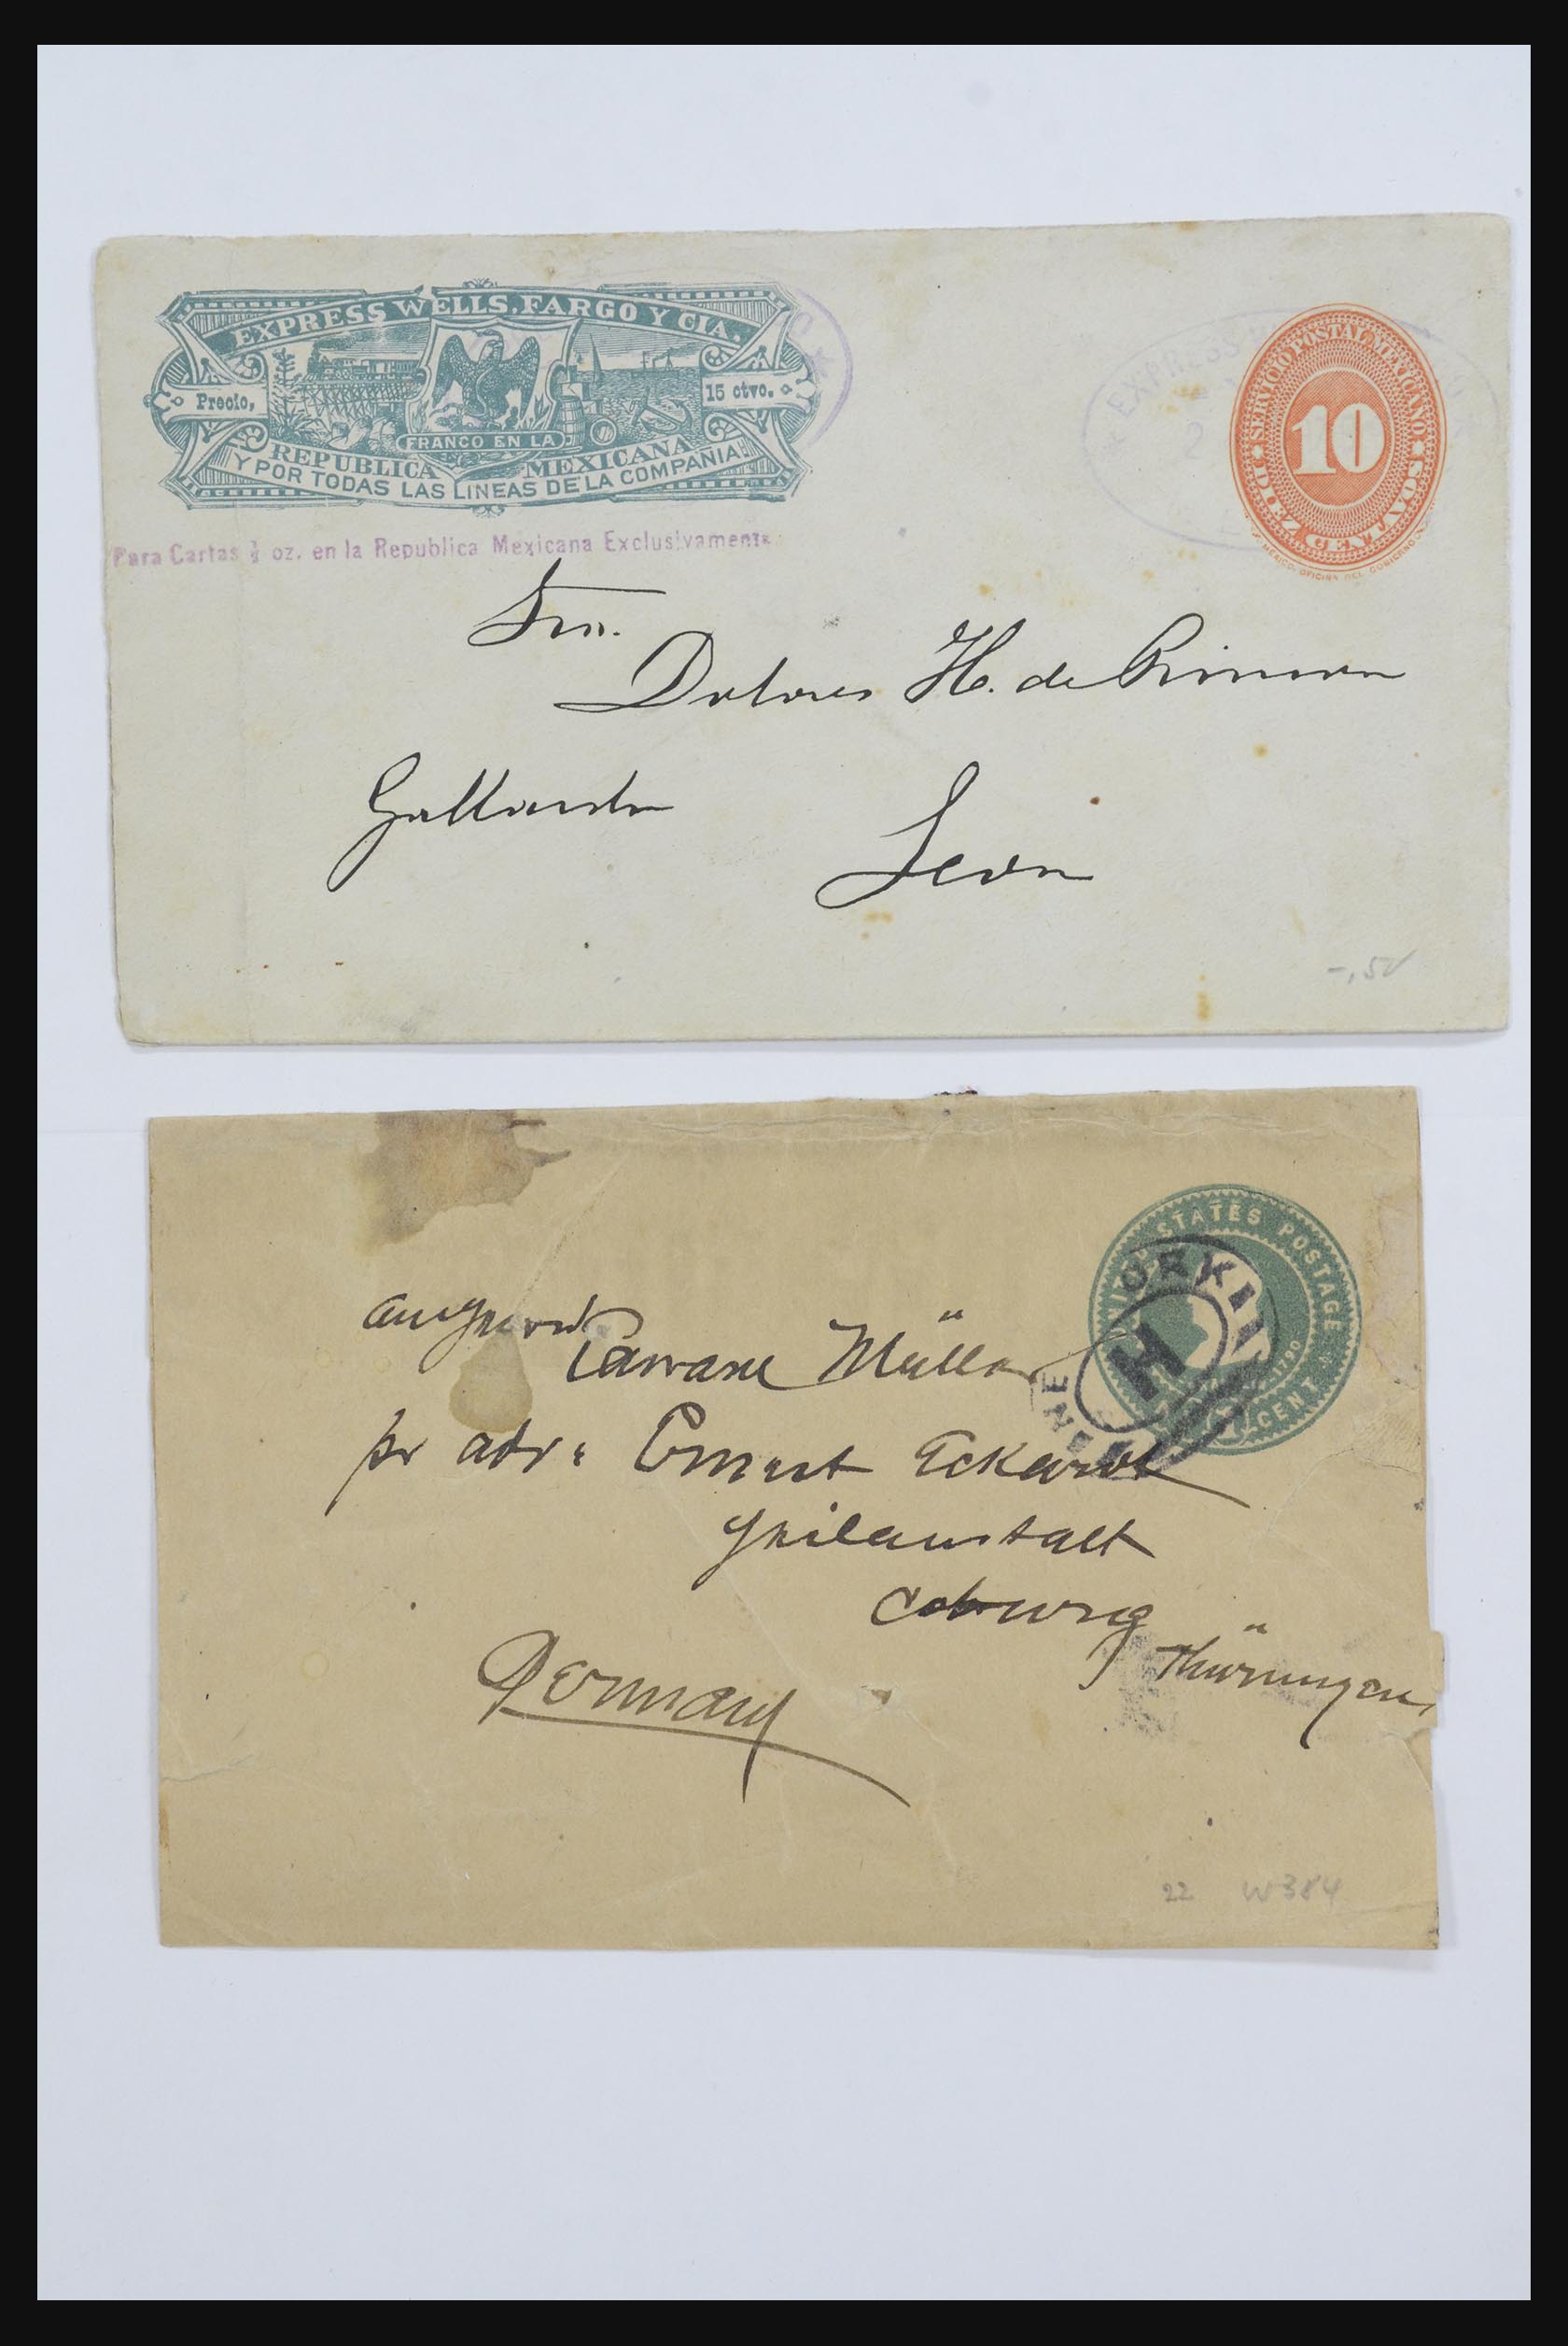 EXPRESS WELLS, FARGO Y CIA.
Precio, 15 ctvo.
FRANCO EN LA
REPUBLICA MEXICANA
Y POR TODAS LAS LINEAS DE LA COMPAÑIA.
Para Cartas ½ oz. en la Republica Mexicana Exclusivamente
EXPRESS
SERVICIO POSTAL MEXICANO
10
DIEZ CENTAVOS
MEXICO. OFICINA DEL GOBIERNO
Sra.
Dolores H. de
Gallardo
Leon
-,50
UNITED STATES POSTAGE
CENT
1790
ORK
H
Müller
pr adr: Ernest Eckardt
Heilanstalt
Coburg
Thüringen
Germany
22 W384